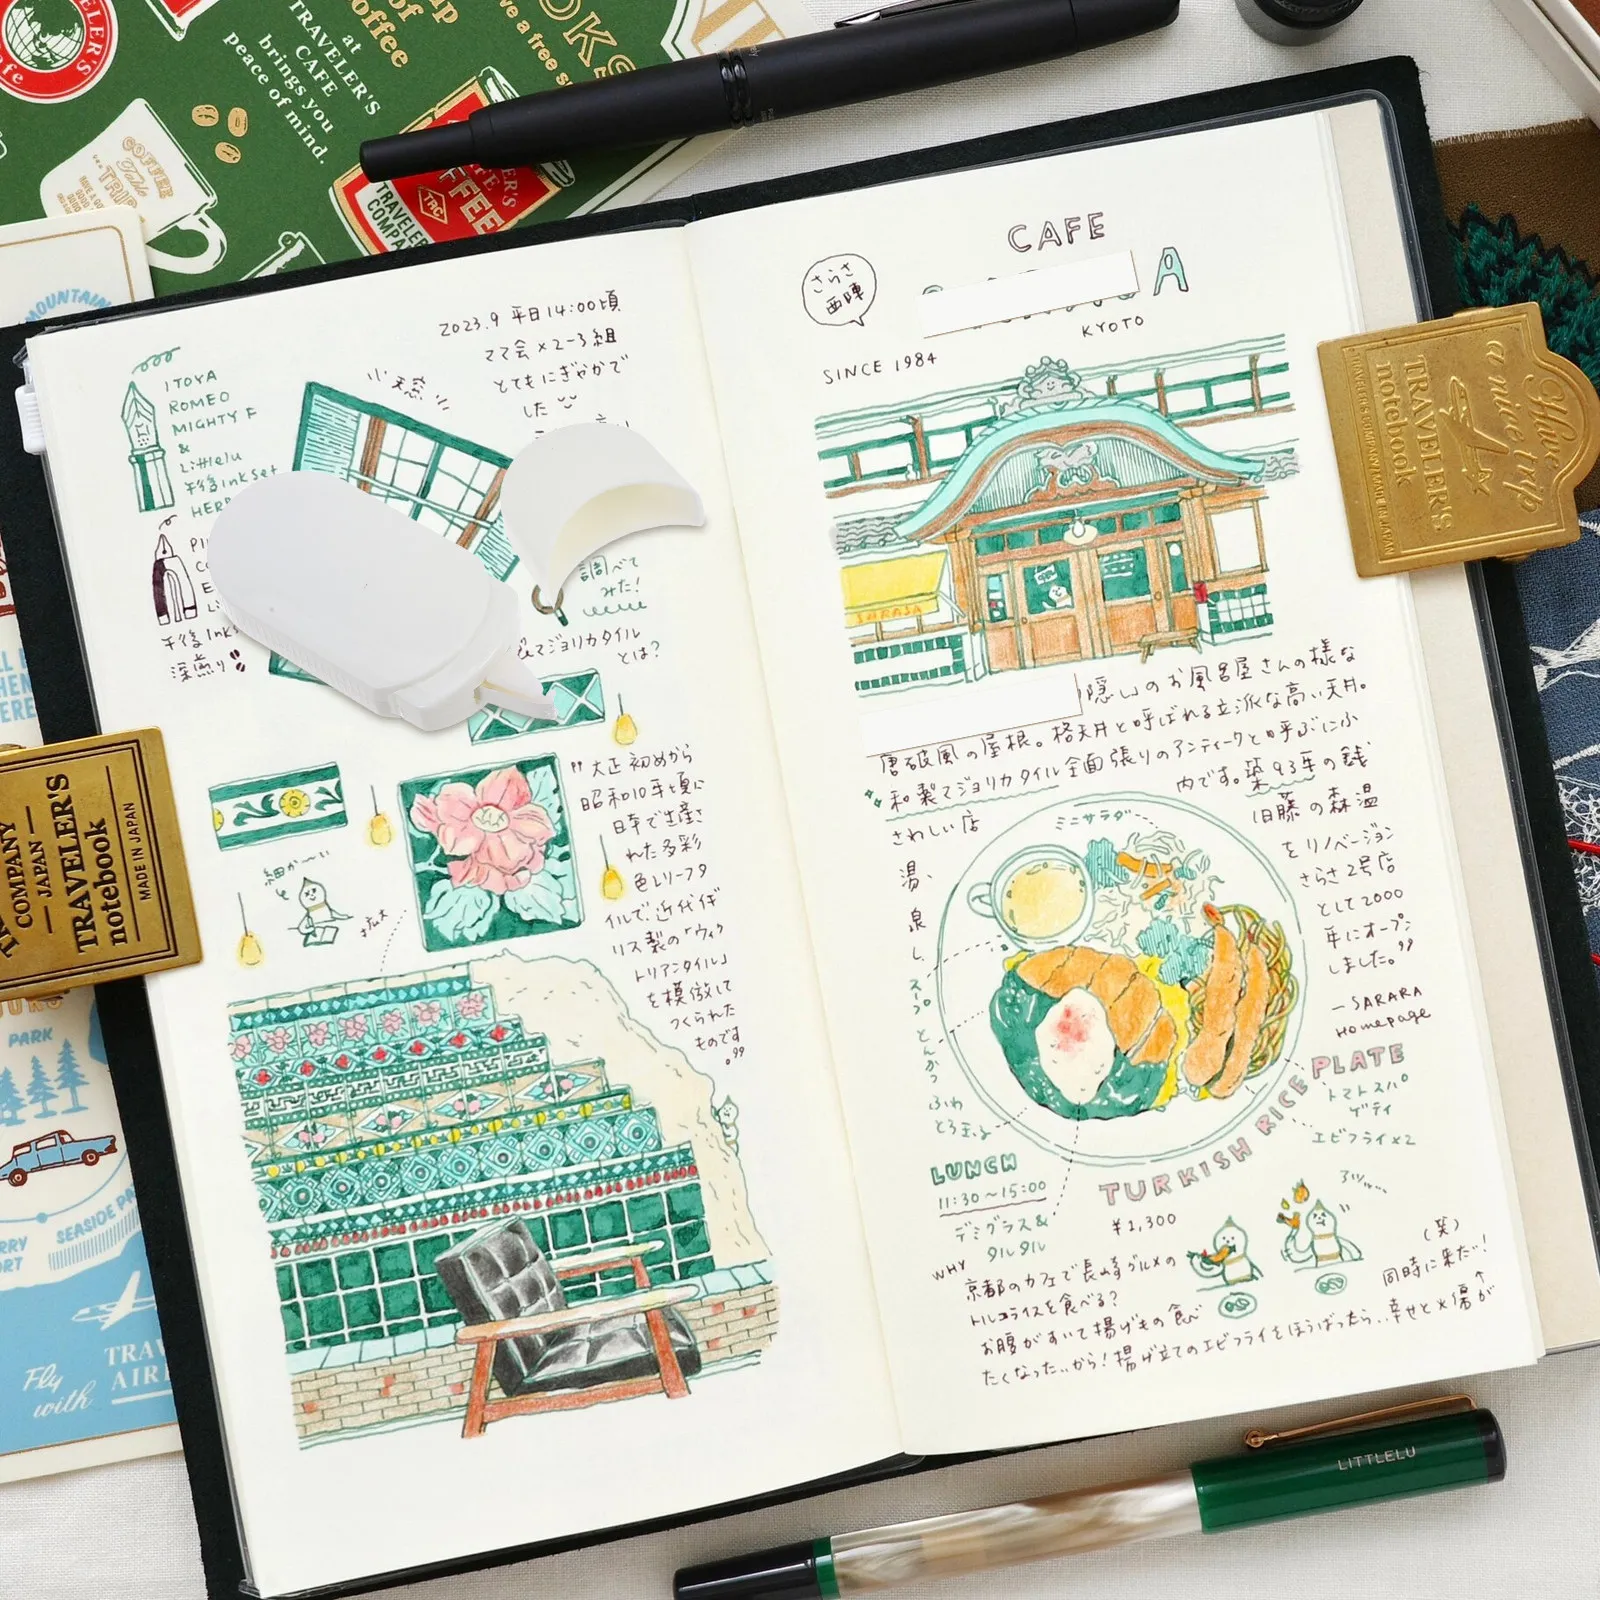 TRAVELER'S
at
TRAVELER'S
CAFE
brings you
peace of mind.
of
Coffee
COFFEE
Table
TRIP
TRAVELER'S
COFFEE
TRC
TRAVELER'S
MOUNTAIN
2023.9 平日14:00頃
ママ会×2-3組
とてもにぎやかで
した
天窓
ITOYA
ROMEO
MIGHTY F
&
Littlelu
午後InkSet
午後Inks
深煎り
調べて
みた!
マジョリカタイル
とは?
"大正初めから
昭和10年頃に
日本で生産さ
れた多彩
色レリーフタ
イルで、近代イギ
リス製の「ヴィク
トリアンタイル」
を模倣して
つくられた
ものです
。"
細か〜い
CAFE
A
KYOTO
さらさ
西陣
SINCE 1984
SARASA
隠しのお風呂屋さんの様な
唐破風の屋根。格天井と呼ばれる立派な高い天井。
和製マジョリカタイル全面張りのアンティークと呼ぶにふ
さわしい店
内です。築93年の銭
湯、
旧藤の森温
泉
をリノベーション
し、
さらさ2号店
として2000
年にオープン
しました。"
— SARARA
Homepage
ミニサラダ
スープ
とんかつ
ふわ
とろ玉子
トマトスパ
ゲティ
エビフライ×2
TURKISH RICE PLATE
¥1,300
LUNCH
11:30〜15:00
デミグラス&
タルタル
WHY
京都のカフェで長崎グルメの
トルコライスを食べる?
お腹がすいて揚げもの食べ
たくなった…から!揚げ立てのエビフライをほうばったら…幸せと火傷が
同時に来た…!
(笑)
Have
a nice trip
TRAVELER'S
notebook
TRAVELER'S COMPANY MADE IN JAPAN
COMPANY
JAPAN
TRAVELER'S
notebook
MADE IN JAPAN
PARK
SEASIDE
Fly
with
LITTLELU